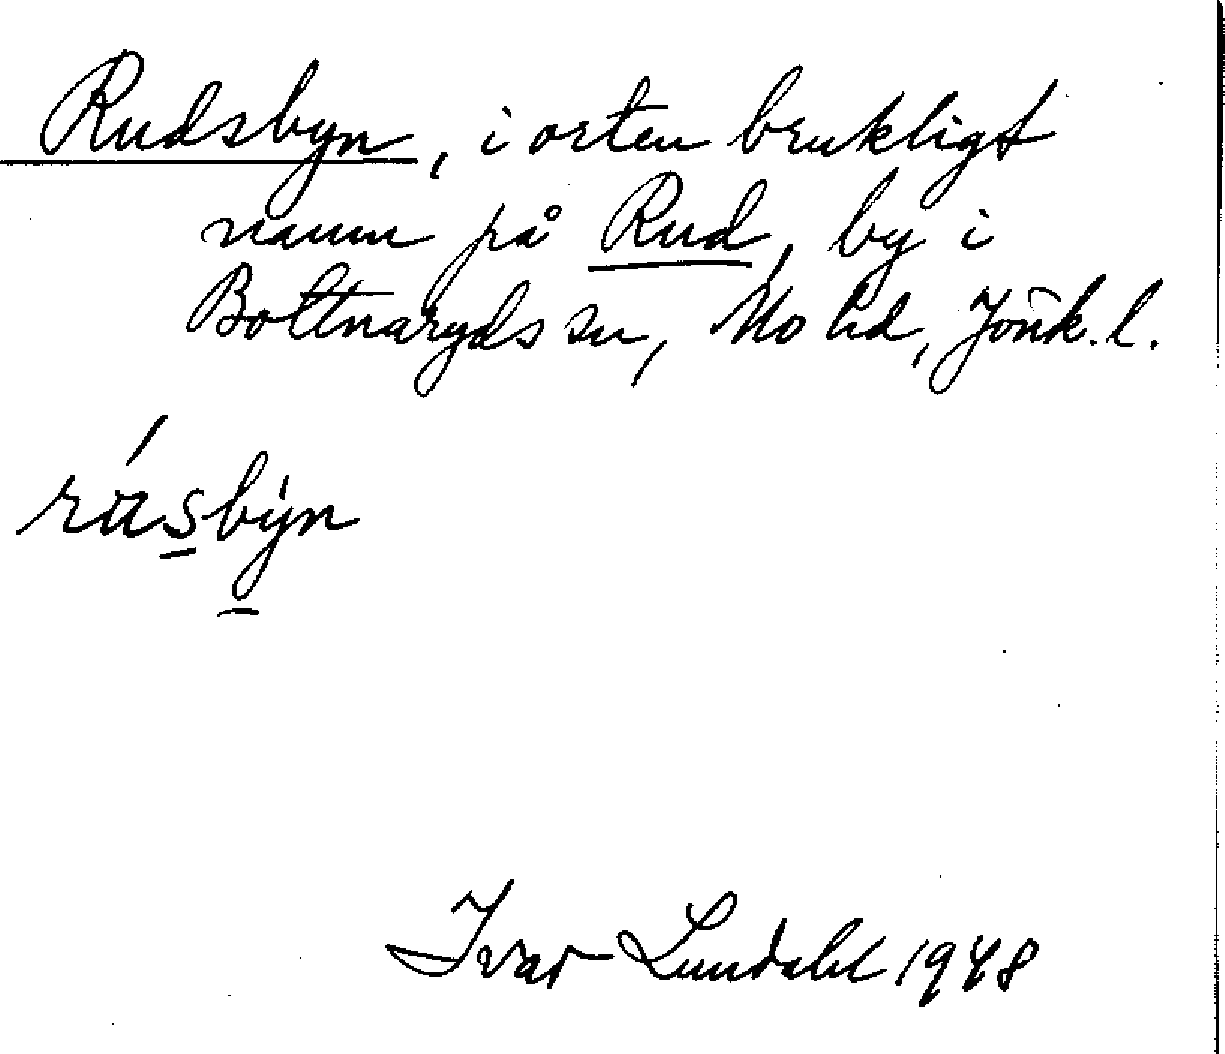 Rudsbyn, i orten brukligt
namn på Rud, by i
Bottnaryds sn, Mo hd, Jönk. l.
rúsbýn
Ivar Lundahl 1948